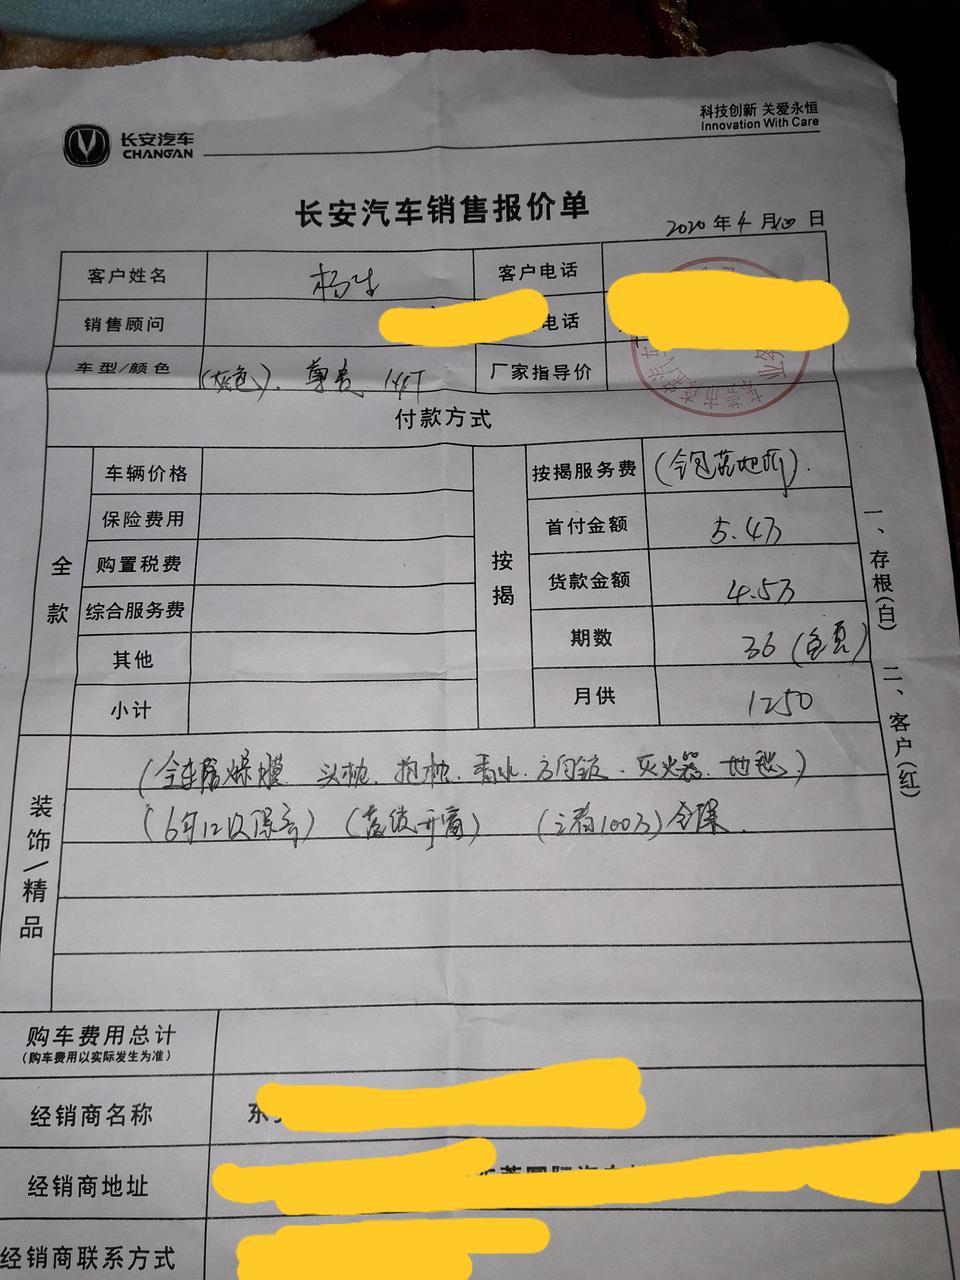 长安汽车
CHANGAN
科技创新 关爱永恒
Innovation With Care
长安汽车销售报价单
2020年4月 日
客户姓名 杨生 客户电话
销售顾问 电话
车型/颜色 (灰色)、尊贵 1.4T 厂家指导价
付款方式
全款
车辆价格
保险费用
购置税费
综合服务费
其他
小计
按揭
按揭服务费 (全包落地价).
首付金额 5.4万
货款金额 4.5万
期数 36
月供 1250
一、存根(白) 二、客户(红)
装饰/精品
(全车防爆膜 头枕. 抱枕. 香水. 方向盘. 灭火器. 地毯)
(6年12次保养) (落锁升窗) (三者100万)全保.
购车费用总计
(购车费用以实际发生为准)
经销商名称 东
经销商地址
经销商联系方式